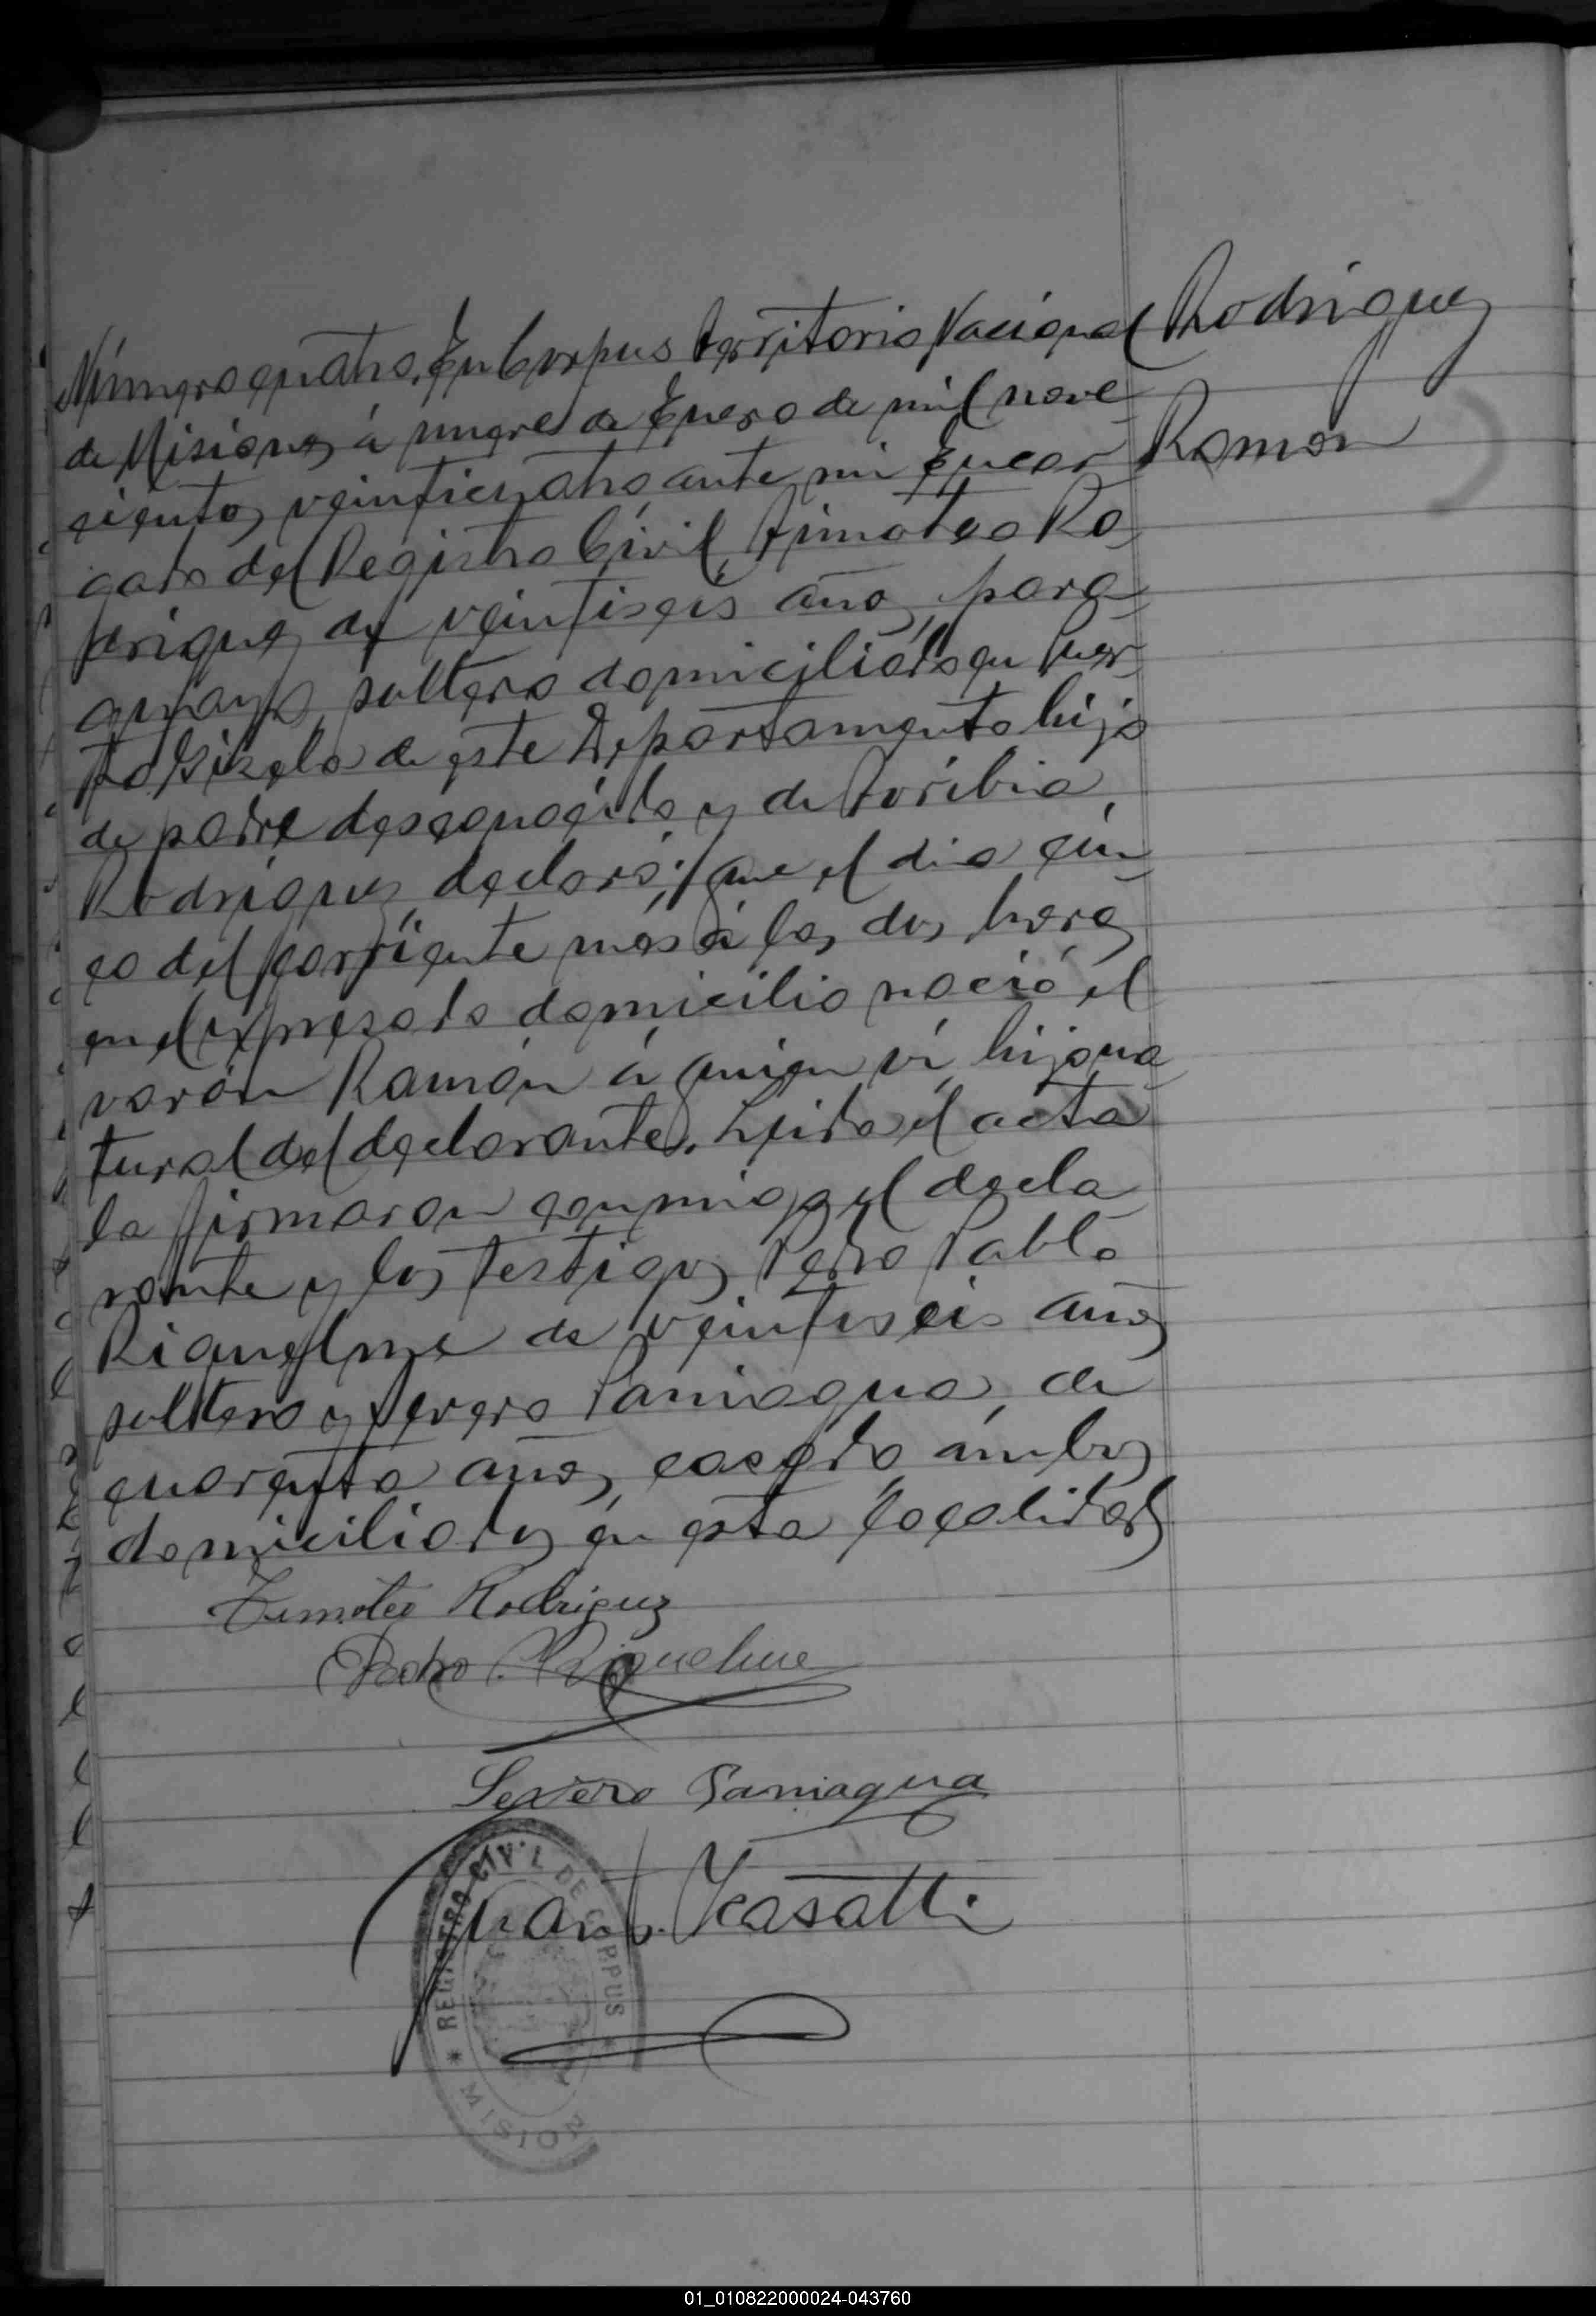 Rodriguez
Ramon
Número cuatro. En Corpus Territorio Nacional
de Misiones, á nueve de Enero de mil nove
cientos veinticuatro, ante mi Encar
gado del Registro Civil, Timoteo Ro
driguez de veintiseis años, para
guayo, soltero domiciliado en Puer
to de este Departamento hijo
de padre desconocido y de Toribia
Rodriguez, declaró: que el dia cin
co del corriente mes á las dos horas
en el expresado domicilio nació el
varón Ramón á quien ví, hijo na
tural del declarante. Leida el acta
la firmaron conmigo el decla
rante y los testigos Pedro Pablo
Riquelme de veintiseis años
soltero y Severo Paniagua, de
cuarenta años, casado, ámbos
domiciliados en esta localidad
Timoteo Rodriguez
Pedro P. Riquelme
Severo Paniagua
Juan Casatti
REGISTRO CIVIL DE CORPUS
* MISION
01_010822000024-043760